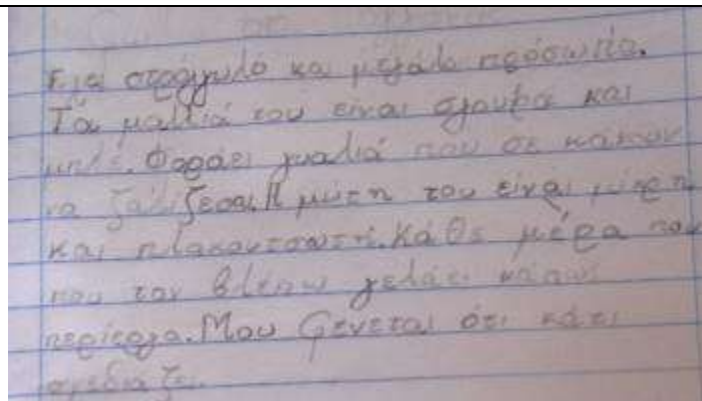 Έχει στρόγγυλο και μεγάλο πρόσωπο.
Τα μαλλιά του είναι σγουρά και
μπλέ. Φοράει γυαλιά που σε κάνουν
να ζαλίζεσαι. Η μύτη του είναι μικρή
και πλακουτσωτή. Κάθε μέρα που
που τον βλέπω γελάει κάπως
περίεργα. Μου φένεται ότι κάτι
σχεδιάζει.